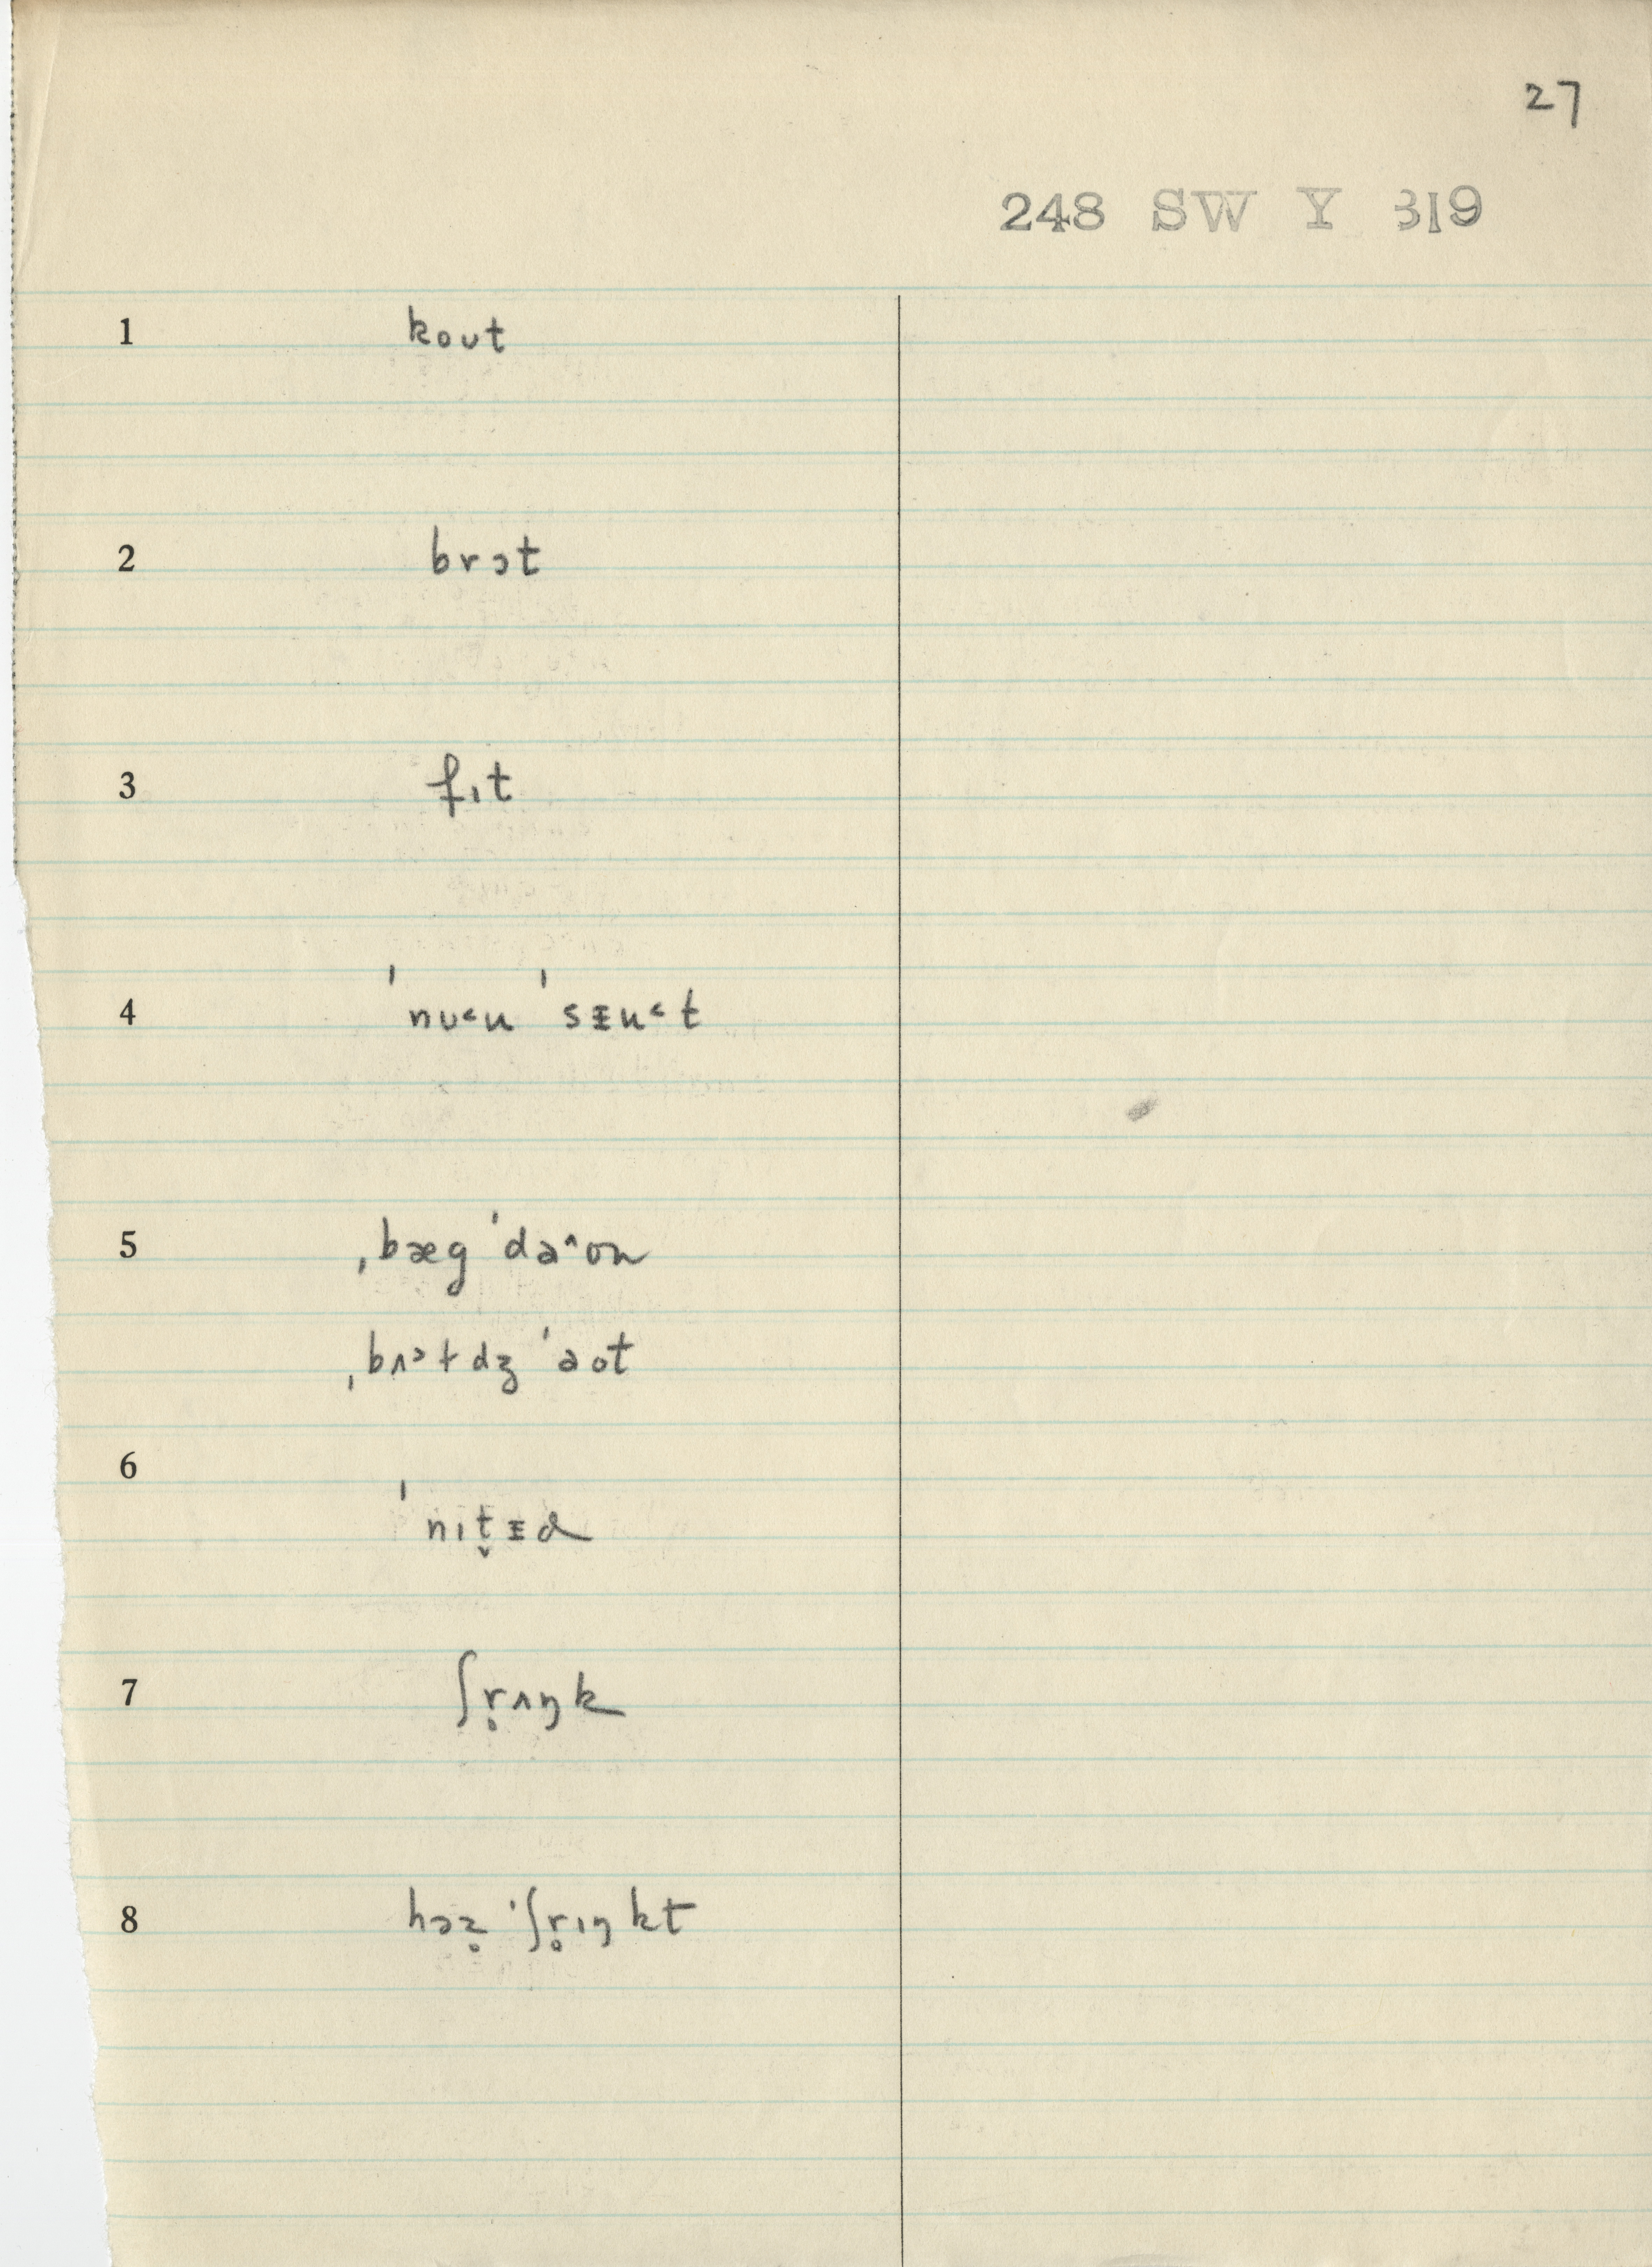 27
248 SW Y 319
1 kout
2 brɔt
3 fɪt
4 ˈnu˂u ˈsᵻu˂t
5 ˌbæg ˈdaˆʊn
ˌbʌɔɫdʒ ˈaot
6 ˈnɪt̬ᵻd
7 ʃr̥ʌŋk
8 hɔz̥ ˈʃr̥ɪŋkt